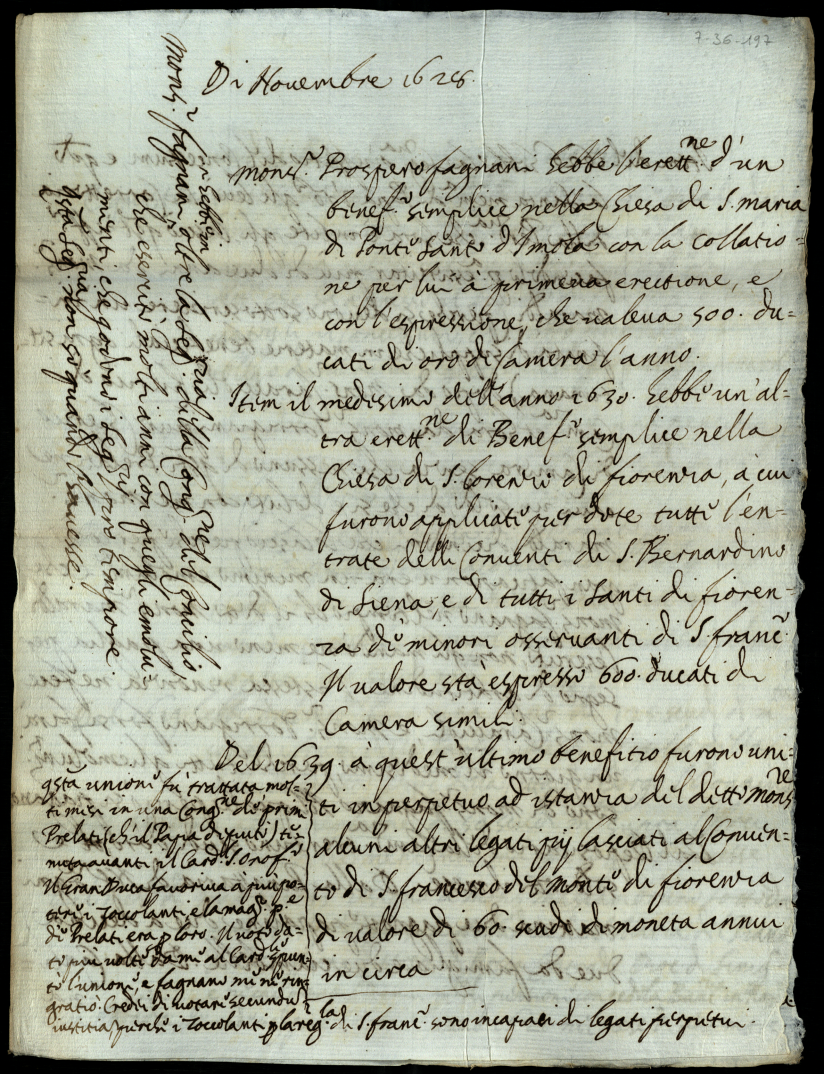 7-36-197
Di Novembre 1628.
Mons.r Prospero fagnani hebbe l'erett.ne d'un
benef.o semplice nella Chiesa di S. Maria
di Ponte Santo d'Imola con la collatio=
ne per lui à primeva erectione, e
con l'espressione, che valeva 500. du=
cati di oro di Camera l'anno.
Item il medesimo dell'anno 1630. hebbe un'al=
tra erett.ne di Benef.o semplice nella
Chiesa di S. Lorenzo di fiorenza, à cui
furono applicate per dote tutte l'en=
trate delli Conventi di S. Bernardino
di Siena, e di tutti i Santi di fioren=
za de minori osservanti di S. franc.o
Il valore stà espresso 600. ducati di
Camera simili.
Del 1639. à quest'ultimo benefitio furono uni=
ti in perpetuo ad istanza del detto Mons.re
alcuni altri legati pij lasciati al Conven=
to di S. francesco del Monte di fiorenza
di valore di 60. scudi di moneta annui
in circa
q.sta unione fù trattata mol=
ti mesi in una Cong.ne de primi
Prelati (ch'il Papa deputò) te=
nuta avanti il Card. S. Onof.o
Il Gran Duca favoriva à più po=
tere i Zoccolanti, e la mag.r p.e
de Prelati era p loro. Il voto da=
to più volte da me al Card.le spun=
tò l'unione, e fagnano me ne rin=
gratiò. Credei di votare secundu
iustitia, perche i Zoccolanti p la reg.la di S. franc.o sono incapaci di legati perpetui.
Mons.r fagnani oltre la Seg.ria della Cong.ne del Concilio,
che esercitò molti anni con quegli emolu=
menti, che godono i Seg.rij pro tempore.
q.sta Seg.ria non sò quando l'havesse.